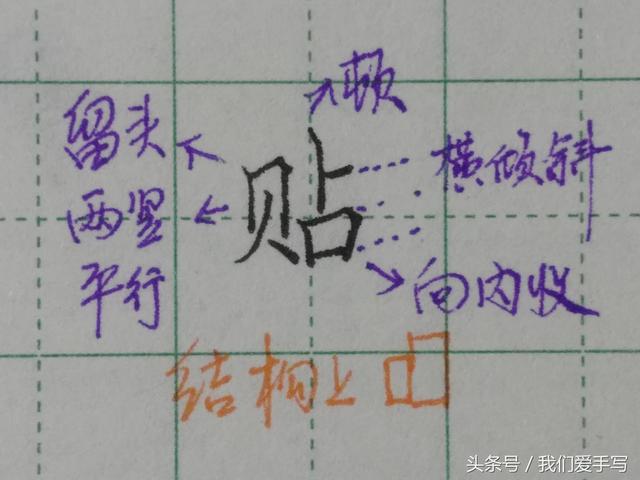 顿
留头
横倾斜
贴
两竖
平行
向内收
结构上
头条号／我们爱手写